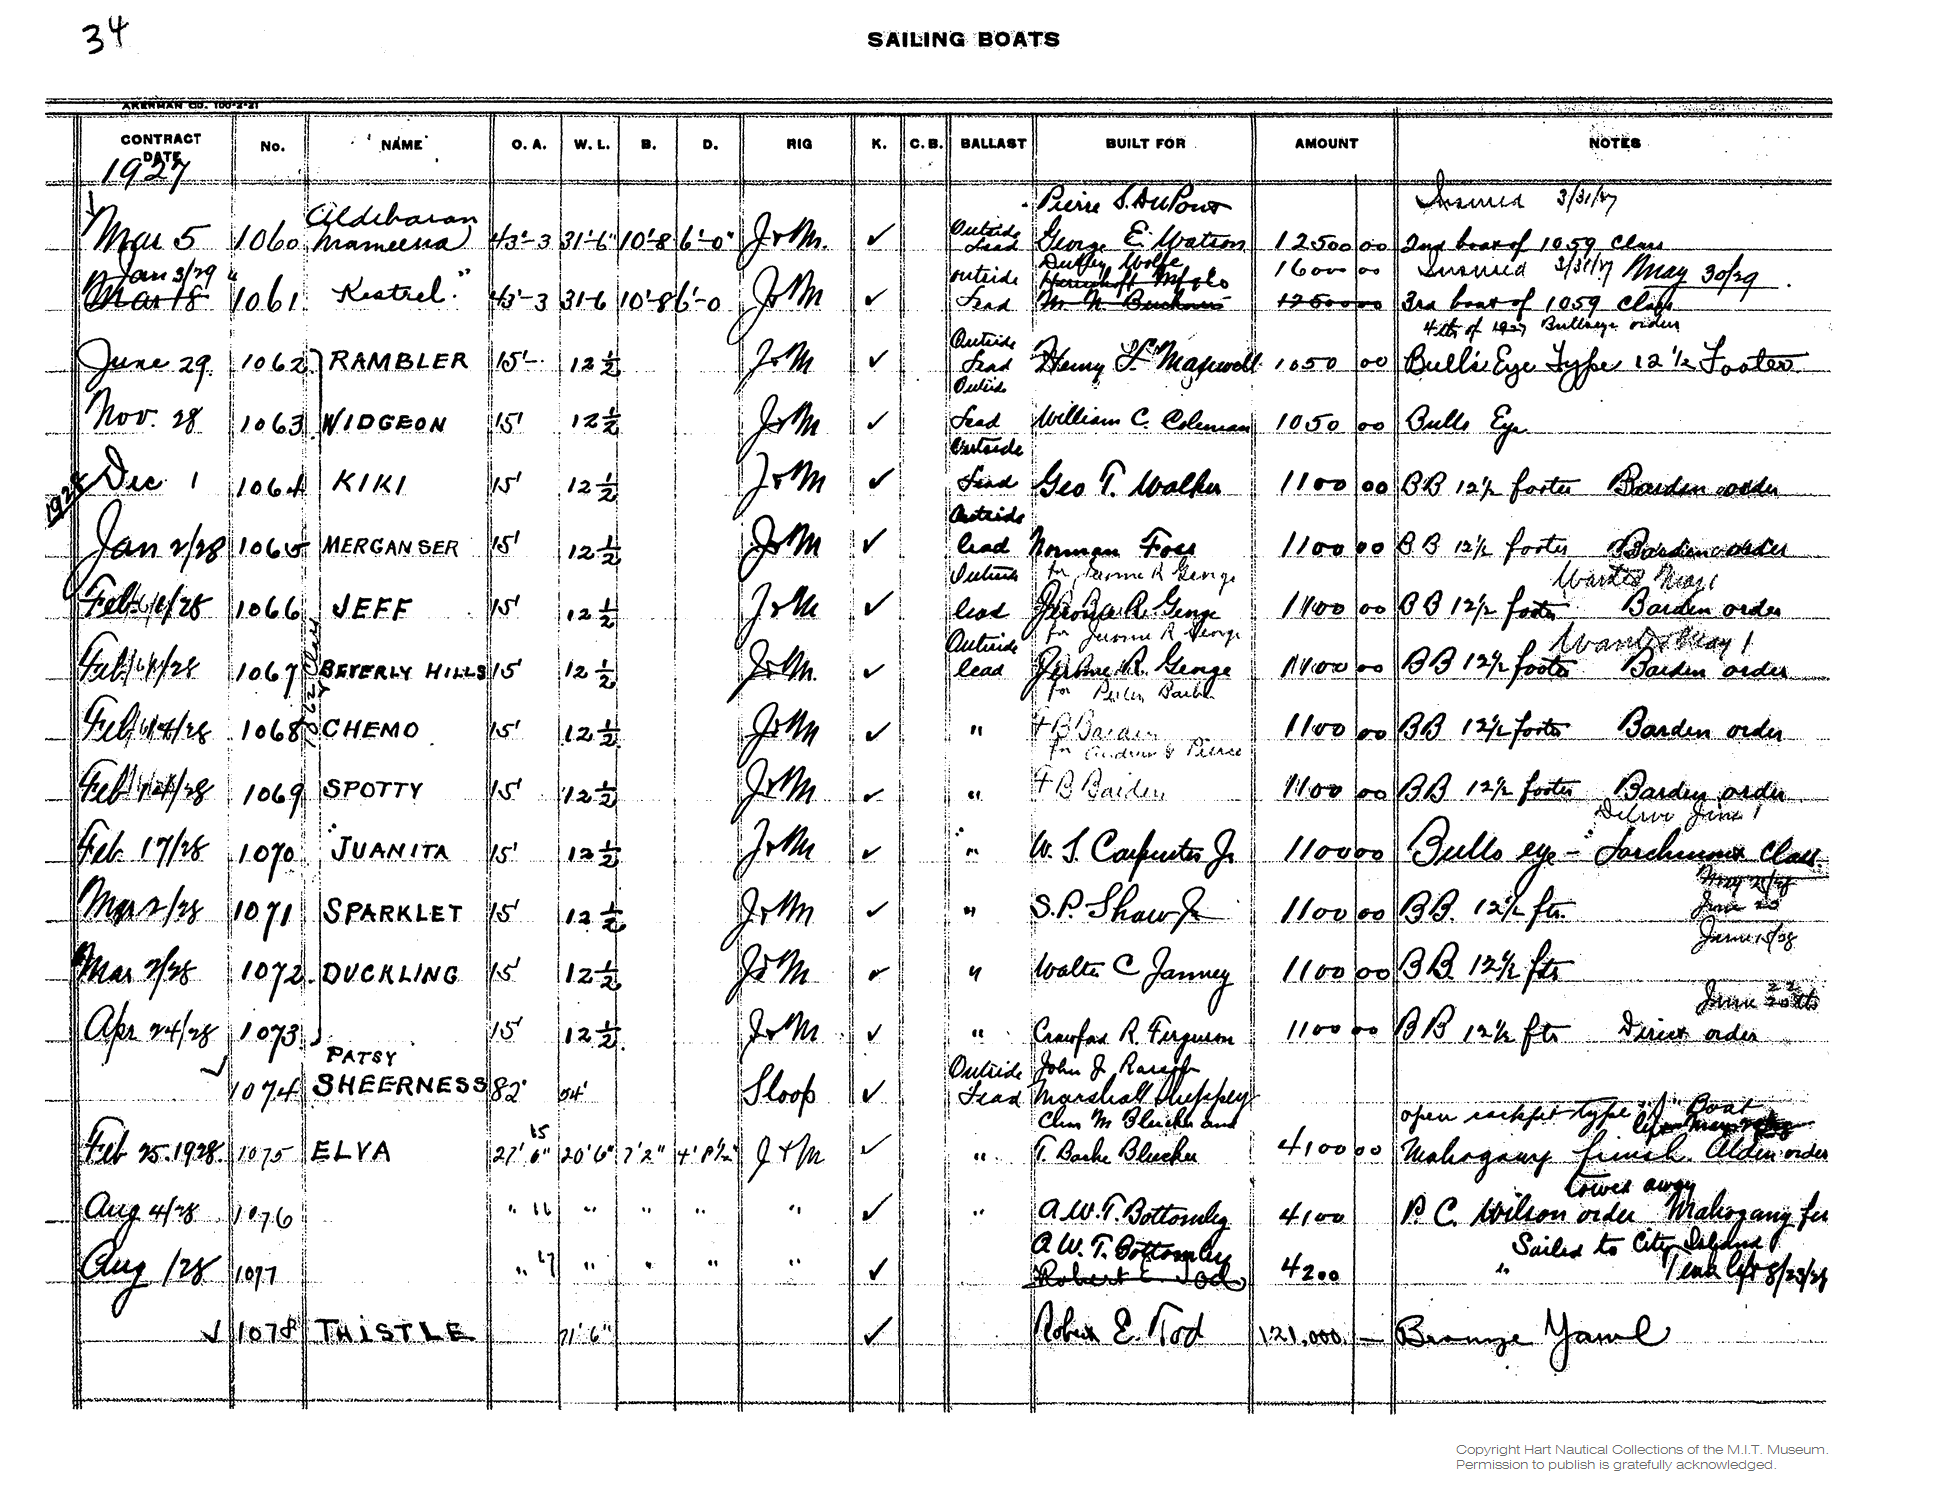 34
SAILING BOATS
AKERMAN CO. 100-2-21
CONTRACT DATE No. NAME O. A. W. L. B. D. RIG K. C. B. BALLAST BUILT FOR AMOUNT NOTES
1927
Pierre S. DuPont Insured 3/31/27
Mar 5 1060 Aldebaran Mameena 43'-3 31'-6" 10'-8 6'-0" J & M. ✓ Outside Lead George E. Watson 12500 00 2nd boat of 1059 Class
Jan 3/29 Dudley Wolfe 16000 00 Insured 3/31/27 May 30/29.
Mar 18 1061 "Kestrel." 43'-3 31-6 10'-8 6'-0 J & M ✓ Outside Lead Herreshoff Mfg Co 12500 00 3rd boat of 1059 Class
4th of 1927 Bullseye orders
June 29 1062 RAMBLER 15'- 12 1/2 J & M ✓ Outside Lead Henry L. Maxwell 1050 00 Bull's Eye Type 12 1/2 Footer
Nov. 28 1063 WIDGEON 15' 12 1/2 J & M ✓ Outside Lead William C. Coleman 1050 00 Bulls Eye
1928
Dec 1 1064 KIKI 15' 12 1/2 J & M ✓ Outside Lead Geo T. Walker 1100 00 BB 12 1/2 footer Barden order
Jan 2/28 1065 MERGANSER 15' 12 1/2 J & M ✓ Outside lead Norman Foss 1100 00 BB 12 1/2 footer Barden order
for Jerome R George Wanted May 1
Feb 1/28 1066 JEFF 15' 12 1/2 J & M ✓ Outside lead Jerome R. George 1100 00 BB 12 1/2 footer Barden order
for Jerome R George Wanted May 1
Feb /28 1067 BEVERLY HILLS 15' 12 1/2 J & M. ✓ Outside lead Jerome R. George 1100 00 BB 12 1/2 footer Barden order
1062 Class
for
Feb /28 1068 CHEMO 15' 12 1/2 J & M ✓ " F B Barden 1100 00 BB 12 1/2 footer Barden order
for Andrew G Pierce
Feb /28 1069 SPOTTY 15' 12 1/2 J & M ✓ " F B Barden 1100 00 BB 12 1/2 footer Barden order
June 1
Feb 17/28 1070 JUANITA 15' 12 1/2 J & M ✓ " W. S. Carpenter Jr 1100 00 Bulls eye - Larchmont Class.
May 25/28
Mar 2/28 1071 SPARKLET 15' 12 1/2 J & M ✓ " S.P. Shaw Jr 1100 00 BB. 12 1/2 ftr. June 20
June 15/28
Mar 2/28 1072 DUCKLING 15' 12 1/2 J & M ✓ " Walter C Janney 1100 00 BB. 12 1/2 ftr
June 22 20th
Apr 24/28 1073 15' 12 1/2 J & M ✓ " Crawford R. Ferguson 1100 00 BB 12 1/2 ftr Direct order
PATSY John J Raskob
✓ 1074 SHEERNESS 82' 54' Sloop ✓ Outside Lead Marshall Sheppey
Chas M Bleecker and open cockpit type "S" Boat
Feb 25. 1928. 1075 ELVA 27' 6" 15 20' 6" 7' 2" 4' 8 1/2" J & M ✓ " T. Bache Bleecker 4100 00 Mahogany finish. Alden order
Towed away
Aug 4/28 1076 " 16 " " " " ✓ " A.W.T. Bottomley 4100 P. C. Wilson order Mahogany fin
A.W. T. Bottomley Sailed to City Island
Aug 1/28 1077 " 17 " " " " ✓ Robert E Tod 4200 " left 8/23/28
✓ 1078 THISTLE 71' 6" ✓ Robert E. Tod 121,000. - Bronze Yawl
Copyright Hart Nautical Collections of the M.I.T. Museum.
Permission to publish is gratefully acknowledged.